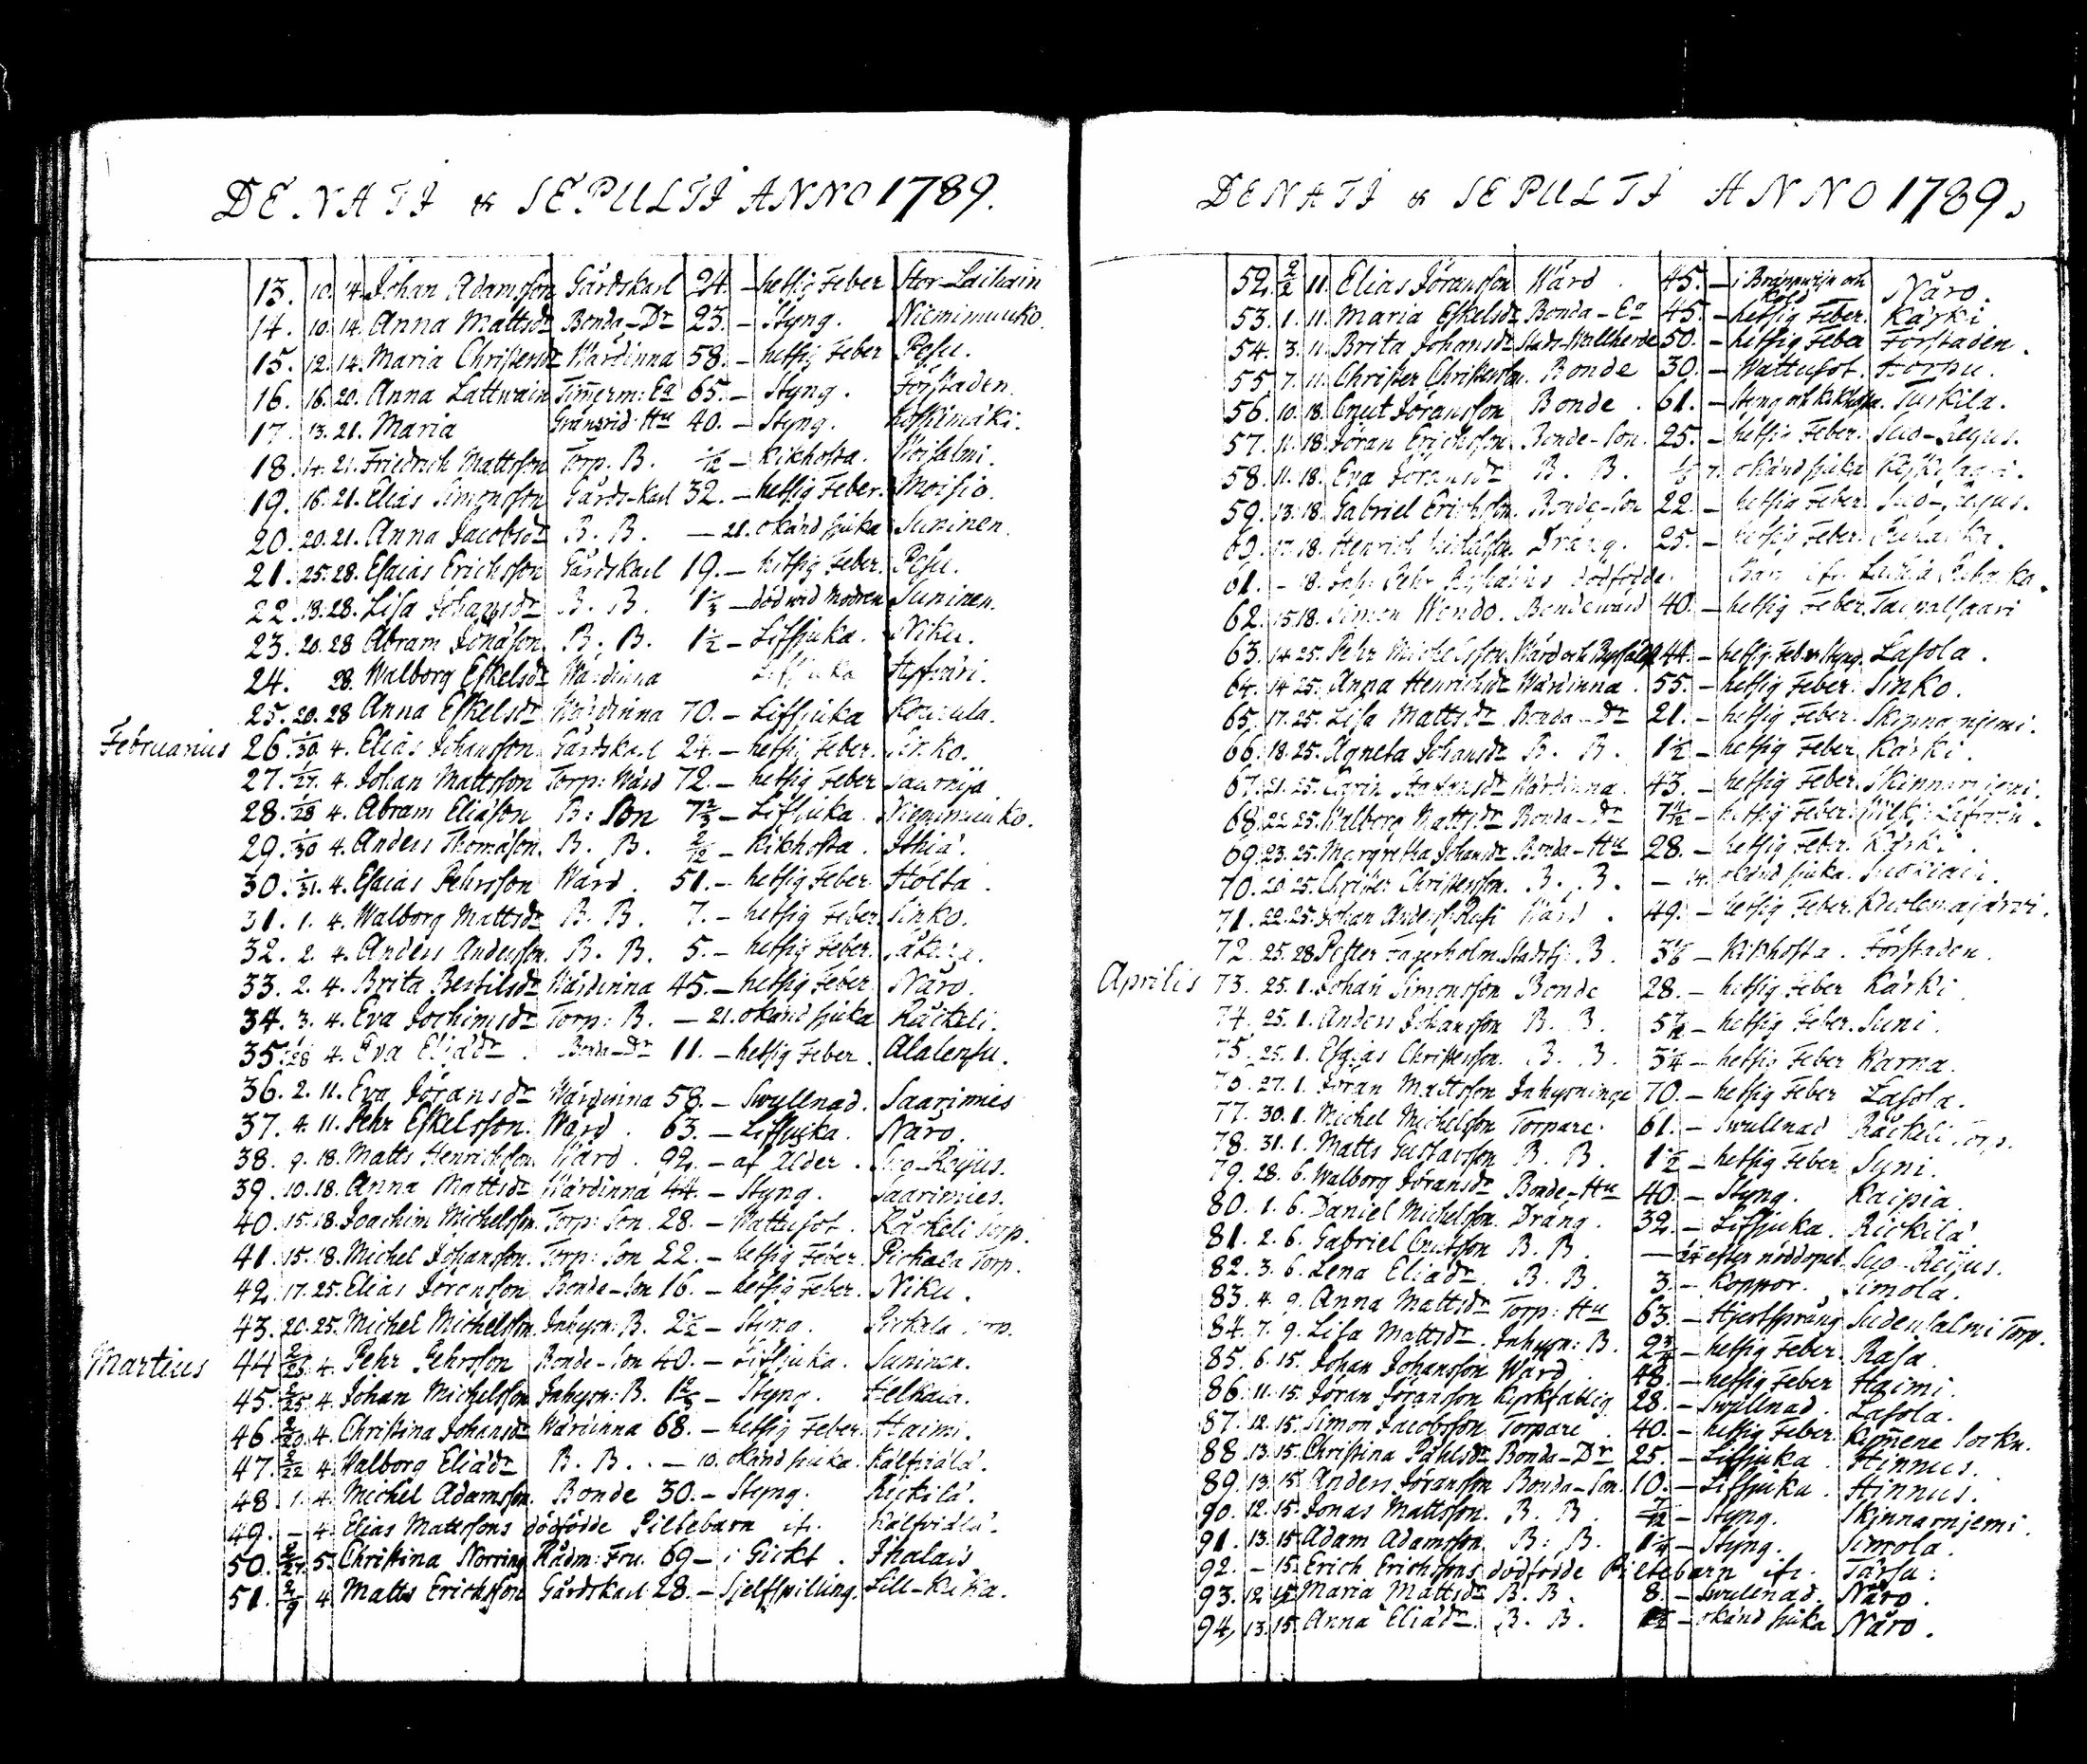 DENATI & SEPULTI ANNO 1789.
13. 10. 14. Johan Adamsson Gårdskarl 24. - hetsig Feber Stor-Laihain
14. 10. 14. Anna Mattsdr Bonda-Dr 23. - Styng. Niemimuuko.
15. 12. 14. Maria Christersdr Wärdinna 58. - hetsig Feber Pesu.
16. 16. 20. Anna Lattwain Timerm: Ea 65. - Styng. Förstaden.
17. 13. 21. Maria Gränsrid. Hu 40. - Styng. Koskimäki.
18. 14. 21. Friedrich Mattsson Torp. B. - Kikhosta.
19. 16. 21. Elias Simonsson Gårds-Karl 32. - hetsig Feber. Moisio.
20. 20. 21. Anna Jacobsdr B. B. - 21. okänd sjuka Suninen.
21. 25. 28. Esaias Erichsson Gårdskarl 19. - hetsig Feber. Pesu.
22. 18. 28. Lisa Johansdr B. B. 1 1/3 - död wid Modren Suninen.
23. 20. 28 Abram Jonason B. B. 1 1/2 - Lifsjuka. Niku.
24. 28. Walborg Eskelsdr Wärdinna Lifsjuka
25. 20. 28 Anna Eskelsdr Wärdinna 70. - Lifsjuka Kouvula.
Februarius 26. 1/30 4. Elias Johansson Gårdskarl 24. - hetsig Feber. Sinko.
27. 1/27. 4. Johan Mattsson Torp: Wärd 72. - hetsig Feber Saarnija.
28. 1/28 4. Abram Eliason B: Son 7 2/3 - Lifsjuka. Niemimuuko.
29. 1/30 4. Anders Thomason. B. B. 2/12 - Kikhosta. Ithiä.
30. 1/31. 4. Esaias Pehrsson Wärd. 51. - hetsig Feber. Hölta.
31. 1. 4. Walborg Mattsdr B. B. 7. - hetsig Feber. Sinko.
32. 2. 4. Anders Andersson. B. B. 5. - hetsig Feber.
33. 2. 4. Brita Bertilsdr Wärdinna 45. - hetsig Feber Näro.
34. 3. 4. Eva Jochimsdr Torp: B. - 21. okänd sjuka Räckeli.
35. 1/28 4. Eva Eliædr. Bonda-Dr 11. - hetsig Feber. Alalensu.
36. 2. 11. Eva Jöransdr Wärdinna 58. - Swullnad. Saarimies
37. 4. 11. Pehr Eskelsson. Wärd. 63. - Lifsjuka. Näro.
38. 9. 18. Matts Henrichsson. Wärd. 92. - af Ålder. Suo-Reijus.
39. 10. 18. Anna Mattsdr Wärdinna 44. - Styng. Saarimies.
40. 15. 18. Joachim Michelsson. Torp: Son. 28. - Wattusot. Räckeli Torp.
41. 15. 18. Michel Johansson. Torp: Son 22. - hetsig Feber. Pickala Torp.
42. 17. 25. Elias Jöransson Bonde-Son 16. - hetsig Feber. Niku.
43. 20. 25. Michel Michelsson. Inhysn: B. 2 1/2 - Styng. Pickala Torp.
Martius 44 2/23. 4. Pehr Pehrsson Bonde-Son 40. - Lifsjuka. Suninen.
45. 2/25. 4. Johan Michelsson Inhysn: B. - Styng. Helkala.
46 2/20. 4. Christina Johansdr Wärdinna 68. - hetsig Feber. Haimi.
47. 2/22 4. Walborg Eliædr B. B. - 10. okänd sjuka. Kälfviälä.
48. 1. 4. Michel Adamsson. Bonde 30. - Styng. Rickilä.
49. - 4. Elias Mattssons dödfödde Piltebarn ifr. Kälfviälä.
50. 2/27. 5. Christina Norring Rådm: Fru. 69 - i Gickt. Ihalais
51. 2/9 4 Matts Erichsson Gårdskarl 28. - Sjelfspilling. Lill-Kiha.
DENATI & SEPULTI ANNO 1789.
52. 2/2 11. Elias Jöransson Wärd. 45. - i Bränwijn och Köld Näro.
53. 1. 11. Maria Eskelsdr Bonda-Ea 45. - hetsig Feber. Kärki
54. 3. 11. Brita Johansdr Stads-Wallherde 50. - hetsig Feber Förstaden.
55 7. 11. Christer Christersson. Bonde 30. - Wattusot. Horsu.
56. 10. 18. Cnut Jöransson Bonde. 61. - Styng och Kikhosta. Tuskila.
57. 11. 18. Jöran Erichsson. Bonde-Son. 25. - hetsig Feber. Suo-Reijus.
58. 11. 18. Eva Jöransdr B. B. okänd sjuka
59. 13. 18. Gabriel Erichsson. Bonde-Son 22. - hetsig Feber. Suo-Reijus.
60. 17. 18. Henrich Dräng. 25. - hetsig Feber.
61. - 18. Pehr dödfödde
62. 15. 18. Simon Wondo. Bondewärd 40. - hetsig Feber. Taipalsaari
63. 14 25. Pehr Michelsson. Wärd och 44. - hetsig Feber Styng. Lasola.
64. 14 25. Anna Henrichsdr Wärdinna. 55. - hetsig Feber. Sinko.
65. 17. 25. Lisa Mattsdr Bonda-Dr 21. - hetsig Feber. Skinnarnjemi.
66. 18. 25. Agneta Johansdr B. B. 1 1/2 - hetsig Feber Kärki.
67. 21. 25. Carin Staffansdr Wärdinna. 43. - hetsig Feber. Skinnarnjemi.
68. 22 25. Walborg Mattsdr Bonda-Dr - hetsig Feber.
69. 23. 25. Margretha Johansdr Bonda-Hu 28. - hetsig Feber. Kärki.
70. 20 25. Christer Christersson. B. B. - 14. okänd sjuka.
71. 22. 25. Johan Anderss. Rasi Wärd. 49. - hetsig Feber. Kuolemajärvi.
72. 25. 28 Petter Fagerholm. Stadstj: B. - Kikhosta. Förstaden.
Aprilis 73. 25. 1. Johan Simonsson Bonde 28. - hetsig Feber Kärki.
74. 25. 1. Anders Johansson B. B. - hetsig Feber. Suni.
75. 25. 1. Esaias Christersson. B. B. - hetsig Feber Karna.
76. 27. 1. Jöran Mattsson Inhysninge 70. - hetsig Feber Lasola.
77. 30. 1. Michel Michelsson Torpare. 61. - Swullnad Räckeli Torp.
78. 31. 1. Matts Gustavsson B. B. 1 1/2 - hetsig Feber Suni.
79. 28. 6. Walborg Jöransdr Bonde-Hu 40. - Styng. Kaipia.
80. 1. 6. Daniel Michelsson. Dräng. 32. - Lifsjuka. Rickilä.
81. 2. 6. Gabriel Cnutsson B. B. - efter nöddopet. Suo-Reijus.
82. 3. 6. Lena Eliædr. B. B. 3. - Koppor. Simola.
83. 4. 9. Anna Mattsdr Torp: Hu 63. - Hjertsprång Sudensalmi Torp.
84. 7. 9. Lisa Mattsdr Inhysn: B. 2 3/4 - hetsig Feber. Rasa.
85. 6. 15. Johan Johansson Wärd. 48. - hetsig Feber Haimi.
86. 11. 15. Jöran Jöransson Kyrkfattig 28. - Swullnad. Lasola.
87. 12. 15. Simon Jacobsson Torpare. 40. - hetsig Feber. Kymene Sockn.
88 13. 15. Christina Påhlsdr Bonda-Dr 25. - Lifsjuka. Hinnus.
89. 13. 15. Anders Jöransson Bonda-Son. 10. - Lifsjuka. Hinnus.
90. 12. 15. Jonas Mattsson. B. B. 7/12 - Styng. Skinnarnjemi.
91. 13. 15 Adam Adamsson. B. B. 1 1/4 - Styng. Simola.
92. - 15. Erich Erichssons dödfödde Piltebarn ifr. Tärsu.
93. 12 15 Maria Mattsdr B. B. 8. - Swullnad. Näro.
94, 13. 15. Anna Eliædr. B. B. - okänd sjuka Näro.